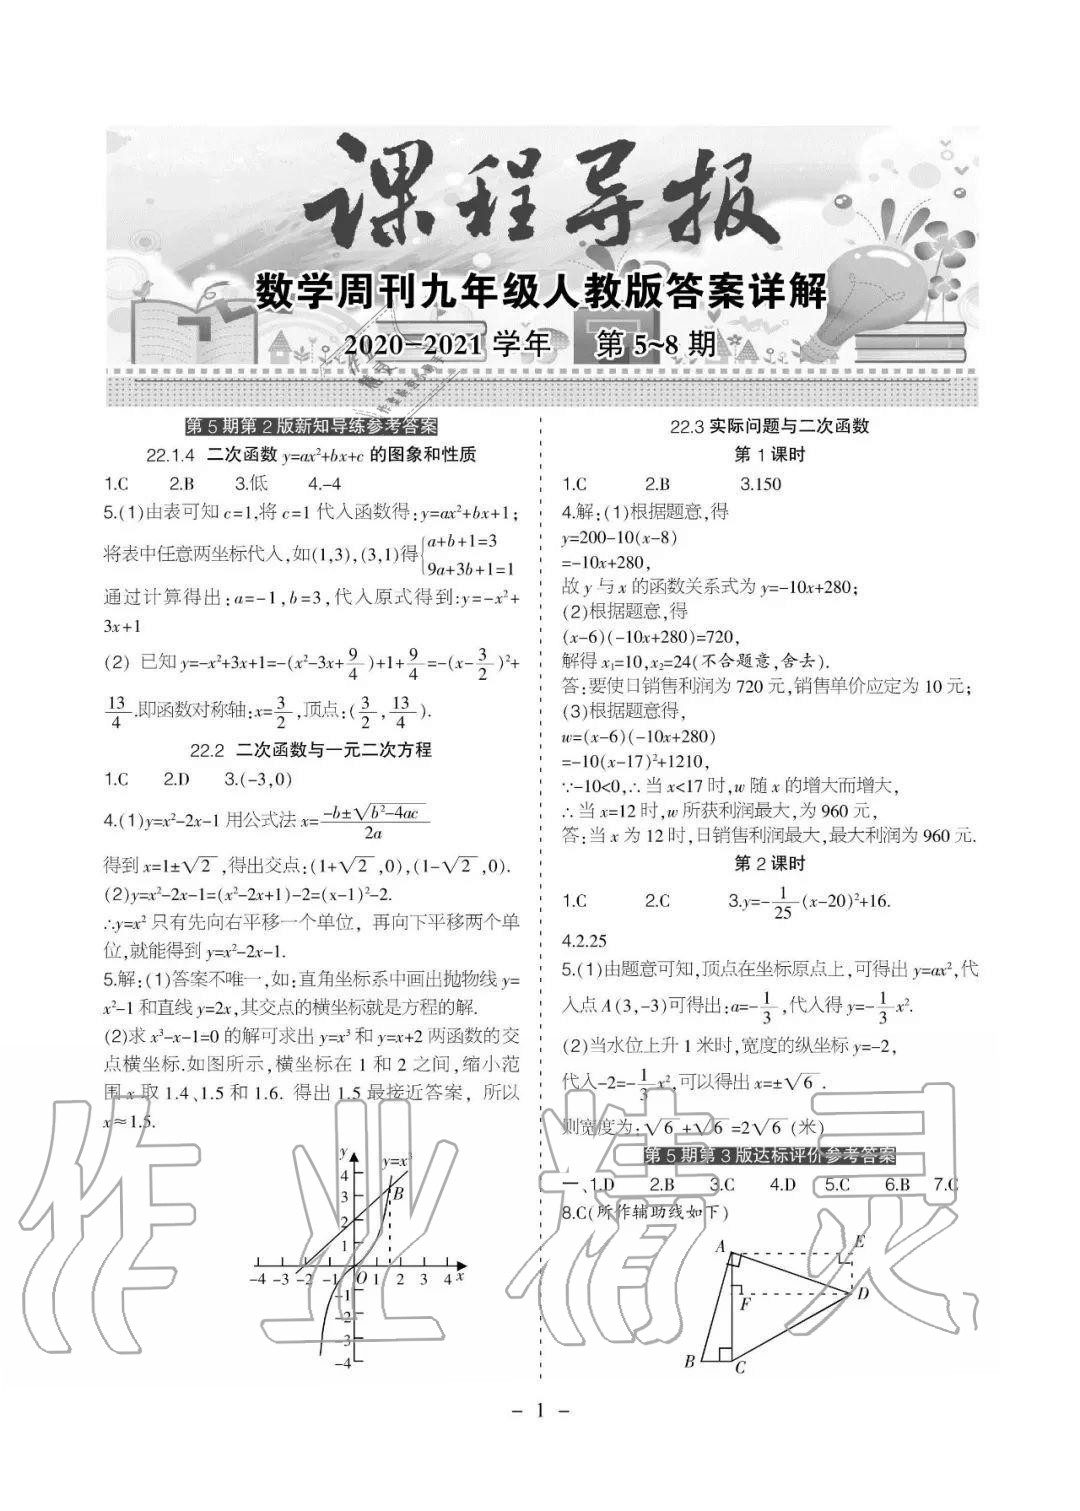 课程导报
数学周刊九年级人教版答案详解
2020-2021 学年 第 5~8 期
第 5 期第 2 版新知导练参考答案
22.1.4 二次函数 y=ax²+bx+c 的图象和性质
1.C 2.B 3.低 4.-4
5.(1)由表可知 c=1,将 c=1 代入函数得:y=ax²+bx+1;
将表中任意两坐标代入,如(1,3),(3,1)得{a+b+1=3
9a+3b+1=1
通过计算得出:a=-1,b=3,代入原式得到:y=-x²+
3x+1
(2) 已知 y=-x²+3x+1=-(x²-3x+9/4)+1+9/4=-(x-3/2)²+
13/4.即函数对称轴:x=3/2,顶点:(3/2,13/4).
22.2 二次函数与一元二次方程
1.C 2.D 3.(-3,0)
4.(1)y=x²-2x-1 用公式法 x=(-b±√(b²-4ac))/2a
得到 x=1±√2,得出交点:(1+√2,0),(1-√2,0).
(2)y=x²-2x-1=(x²-2x+1)-2=(x-1)²-2.
∴y=x² 只有先向右平移一个单位, 再向下平移两个单
位,就能得到 y=x²-2x-1.
5.解:(1)答案不唯一,如:直角坐标系中画出抛物线 y=
x²-1 和直线 y=2x,其交点的横坐标就是方程的解.
(2)求 x³-x-1=0 的解可求出 y=x³ 和 y=x+2 两函数的交
点横坐标.如图所示,横坐标在 1 和 2 之间,缩小范
围 x 取 1.4、1.5 和 1.6. 得出 1.5 最接近答案, 所以
x≈1.5.
y
y=x³
4
3
2
1
B
-4 -3 -2 -1 O 1 2 3 4 x
-1
-2
-3
-4
22.3 实际问题与二次函数
第 1 课时
1.C 2.B 3.150
4.解:(1)根据题意,得
y=200-10(x-8)
=-10x+280,
故 y 与 x 的函数关系式为 y=-10x+280;
(2)根据题意,得
(x-6)(-10x+280)=720,
解得 x₁=10,x₂=24(不合题意,舍去).
答:要使日销售利润为 720 元,销售单价应定为 10 元;
(3)根据题意得,
w=(x-6)(-10x+280)
=-10(x-17)²+1210,
∵-10<0,∴当 x<17 时,w 随 x 的增大而增大,
∴当 x=12 时,w 所获利润最大,为 960 元,
答:当 x 为 12 时,日销售利润最大,最大利润为 960 元.
第 2 课时
1.C 2.C 3.y=-1/25(x-20)²+16.
4.2.25
5.(1)由题意可知,顶点在坐标原点上,可得出 y=ax²,代
入点 A(3,-3)可得出:a=-1/3,代入得 y=-1/3x².
(2)当水位上升 1 米时,宽度的纵坐标 y=-2,
代入-2=-1/3x²,可以得出 x=±√6.
则宽度为:√6+√6=2√6(米)
第 5 期第 3 版达标评价参考答案
一、1.D 2.B 3.C 4.D 5.C 6.B 7.C
8.C(所作辅助线如下)
A
E
F
D
B
C
作业精灵
- 1 -